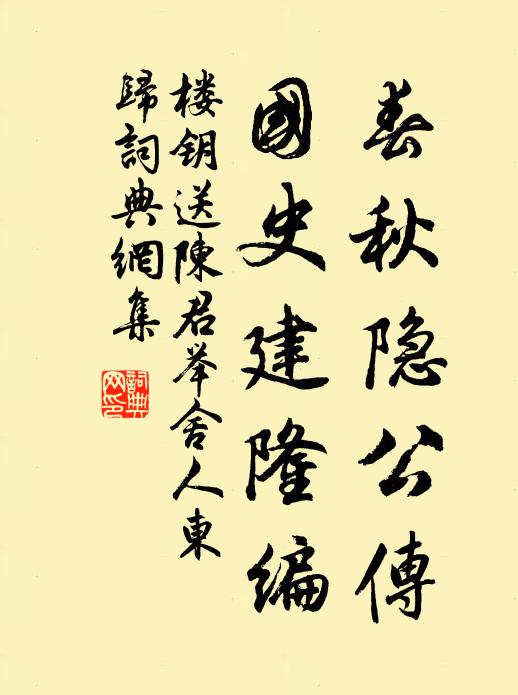 春秋隐公傳
國史建隆编
楼钥送陳君举舍人東
歸詞典網集
詞典
网印